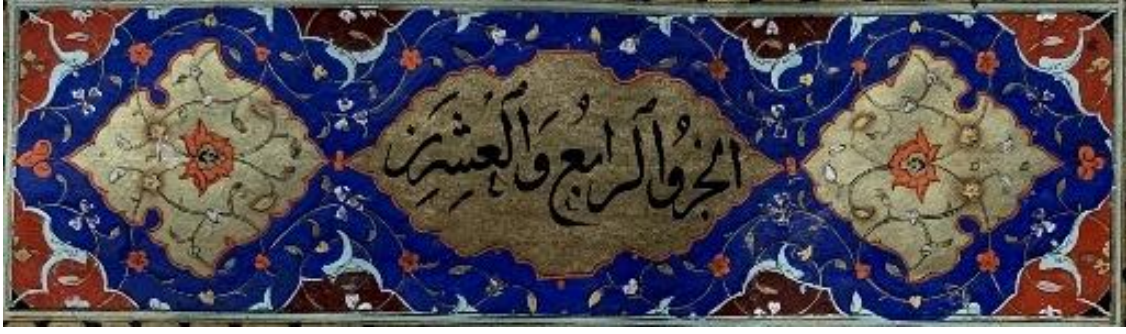 الجزؤ الرابع وَالْعُشِرَيْنَ